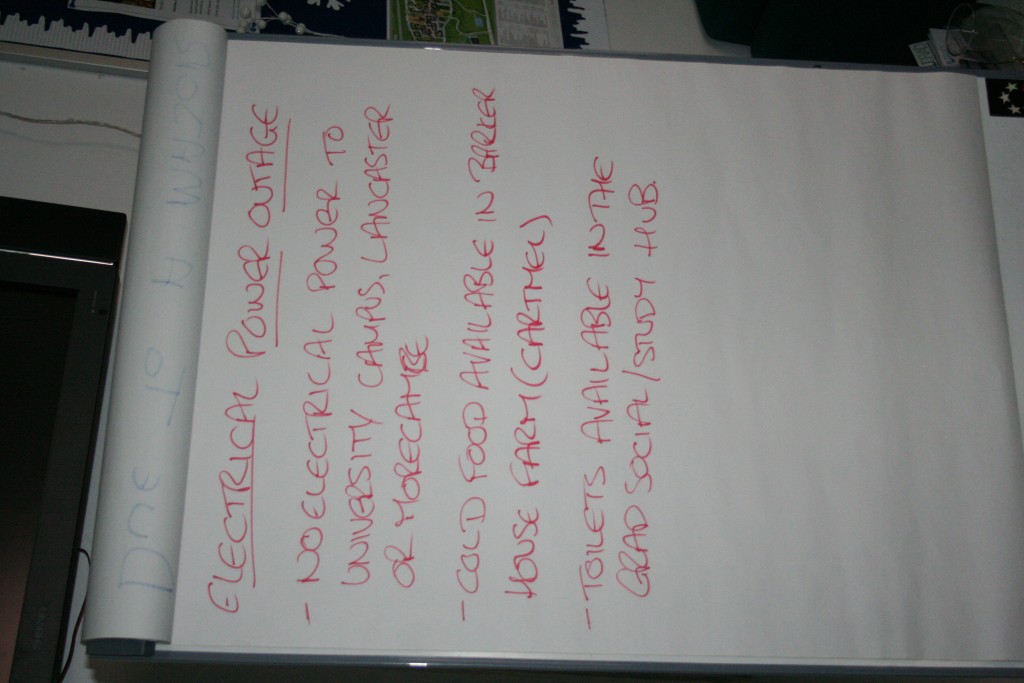 ELECTRICAL POWER OUTAGE
- NO ELECTRICAL POWER TO
UNIVERSITY CAMPUS, LANCASTER
OR MORECAMBE
- COLD FOOD AVAILABLE IN BARKER
HOUSE FARM (CARTMEL)
- TOILETS AVAILABLE IN THE
GRAD SOCIAL/STUDY HUB.